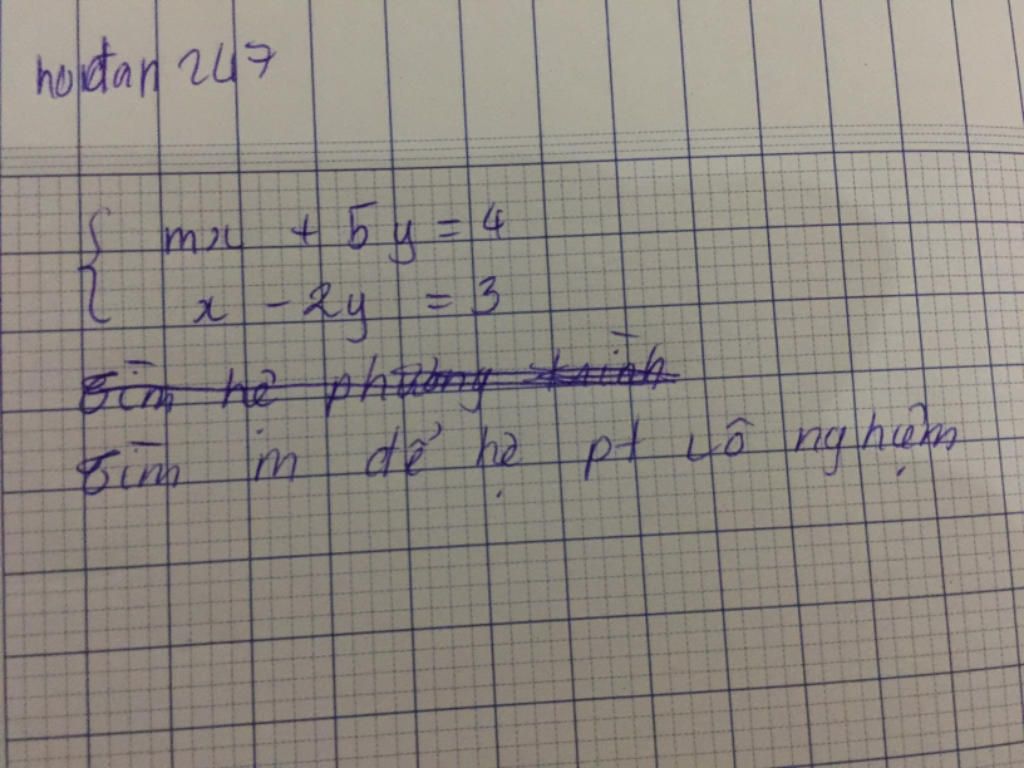 hoidan 247
{ mx + 5y = 4
x - 2y = 3
Tìm hệ phương trình
Tìm m để hệ pt vô nghiệm